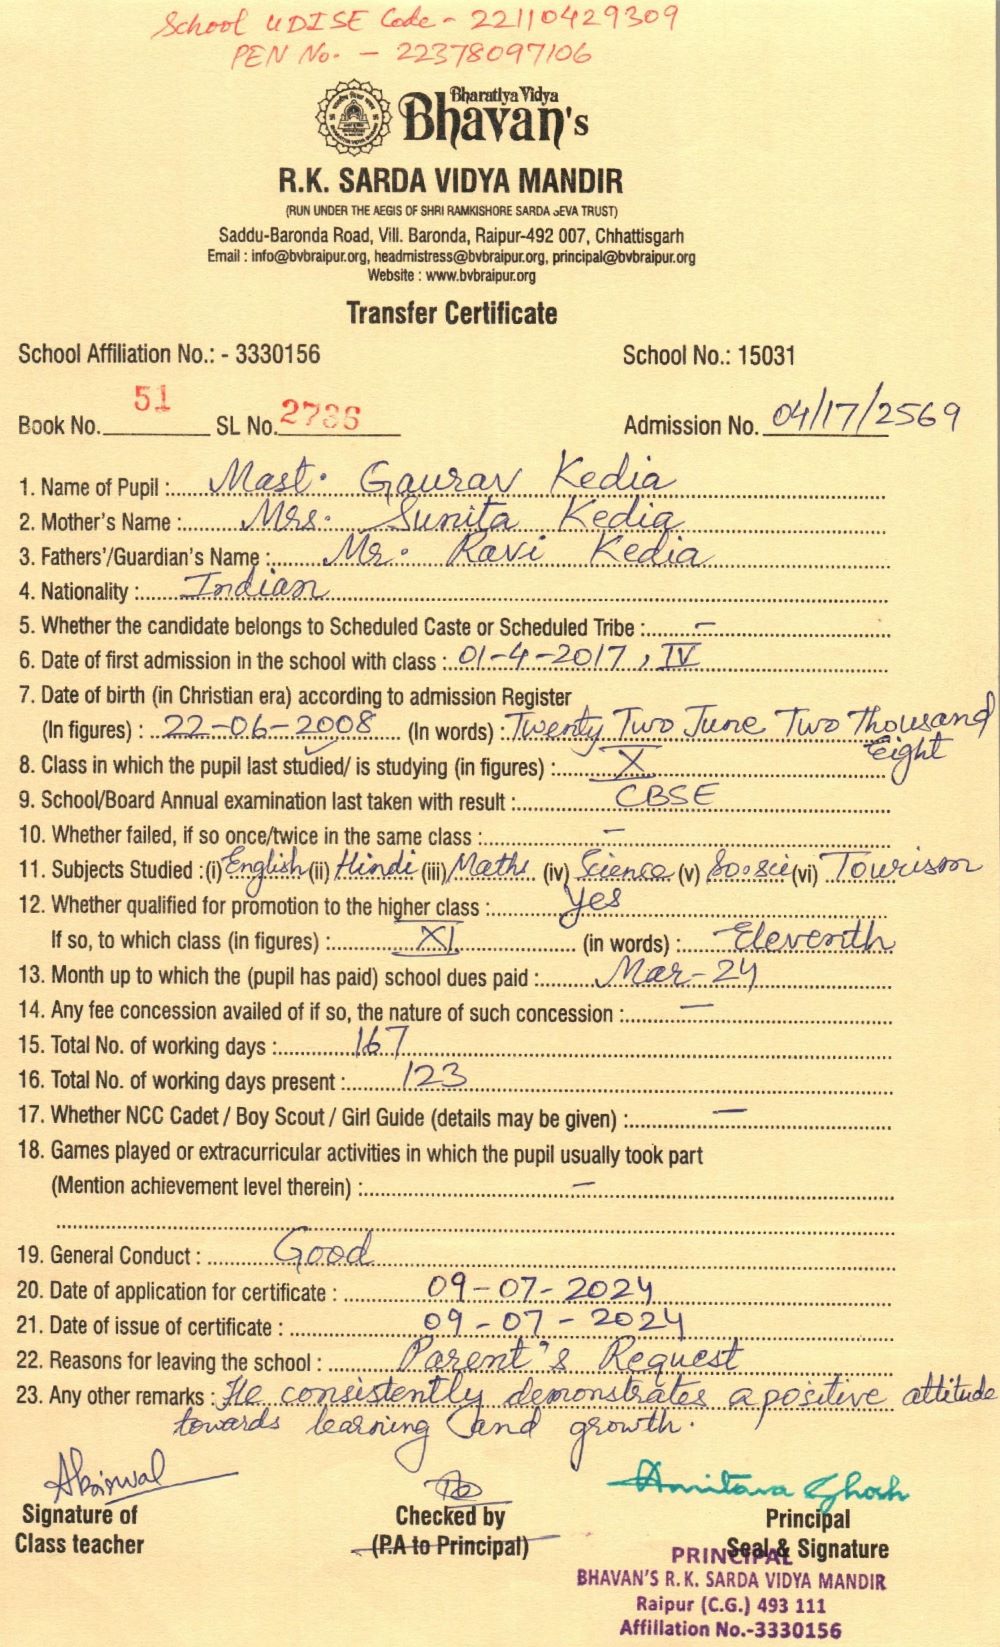 School UDISE Code - 22110429309
PEN No. - 22378097106
Bharatiya Vidya
Bhavan's
R.K. SARDA VIDYA MANDIR
(RUN UNDER THE AEGIS OF SHRI RAMKISHORE SARDA SEVA TRUST)
Saddu-Baronda Road, Vill. Baronda, Raipur-492 007, Chhattisgarh
Email : info@bvbraipur.org, headmistress@bvbraipur.org, principal@bvbraipur.org
Website : www.bvbraipur.org
Transfer Certificate
School Affiliation No.: - 3330156 School No.: 15031
Book No. 51 SL No. 2736 Admission No. 04/17/2569
1. Name of Pupil : Mast. Gaurav Kedia
2. Mother's Name : Mrs. Sunita Kedia
3. Fathers'/Guardian's Name : Mr. Ravi Kedia
4. Nationality : Indian
5. Whether the candidate belongs to Scheduled Caste or Scheduled Tribe : —
6. Date of first admission in the school with class : 01-4-2017, IV
7. Date of birth (in Christian era) according to admission Register
(In figures) : 22-06-2008 (In words) : Twenty Two June Two Thousand
Eight
8. Class in which the pupil last studied/ is studying (in figures) : X
9. School/Board Annual examination last taken with result : CBSE
10. Whether failed, if so once/twice in the same class : —
11. Subjects Studied :(i) English (ii) Hindi (iii) Maths (iv) Science (v) So.sci (vi) Tourism
12. Whether qualified for promotion to the higher class : Yes
If so, to which class (in figures) : XI (in words) : Eleventh
13. Month up to which the (pupil has paid) school dues paid : Mar-24
14. Any fee concession availed of if so, the nature of such concession : —
15. Total No. of working days : 167
16. Total No. of working days present : 123
17. Whether NCC Cadet / Boy Scout / Girl Guide (details may be given) : —
18. Games played or extracurricular activities in which the pupil usually took part
(Mention achievement level therein) : —
19. General Conduct : Good
20. Date of application for certificate : 09-07-2024
21. Date of issue of certificate : 09-07-2024
22. Reasons for leaving the school : Parent's Request
23. Any other remarks : He consistently demonstrates a positive attitude
towards learning and growth.
Amitava Ghosh
Signature of Checked by Principal
Class teacher (P.A to Principal) Seal & Signature
PRINCIPAL
BHAVAN'S R. K. SARDA VIDYA MANDIR
Raipur (C.G.) 493 111
Affiliation No.-3330156